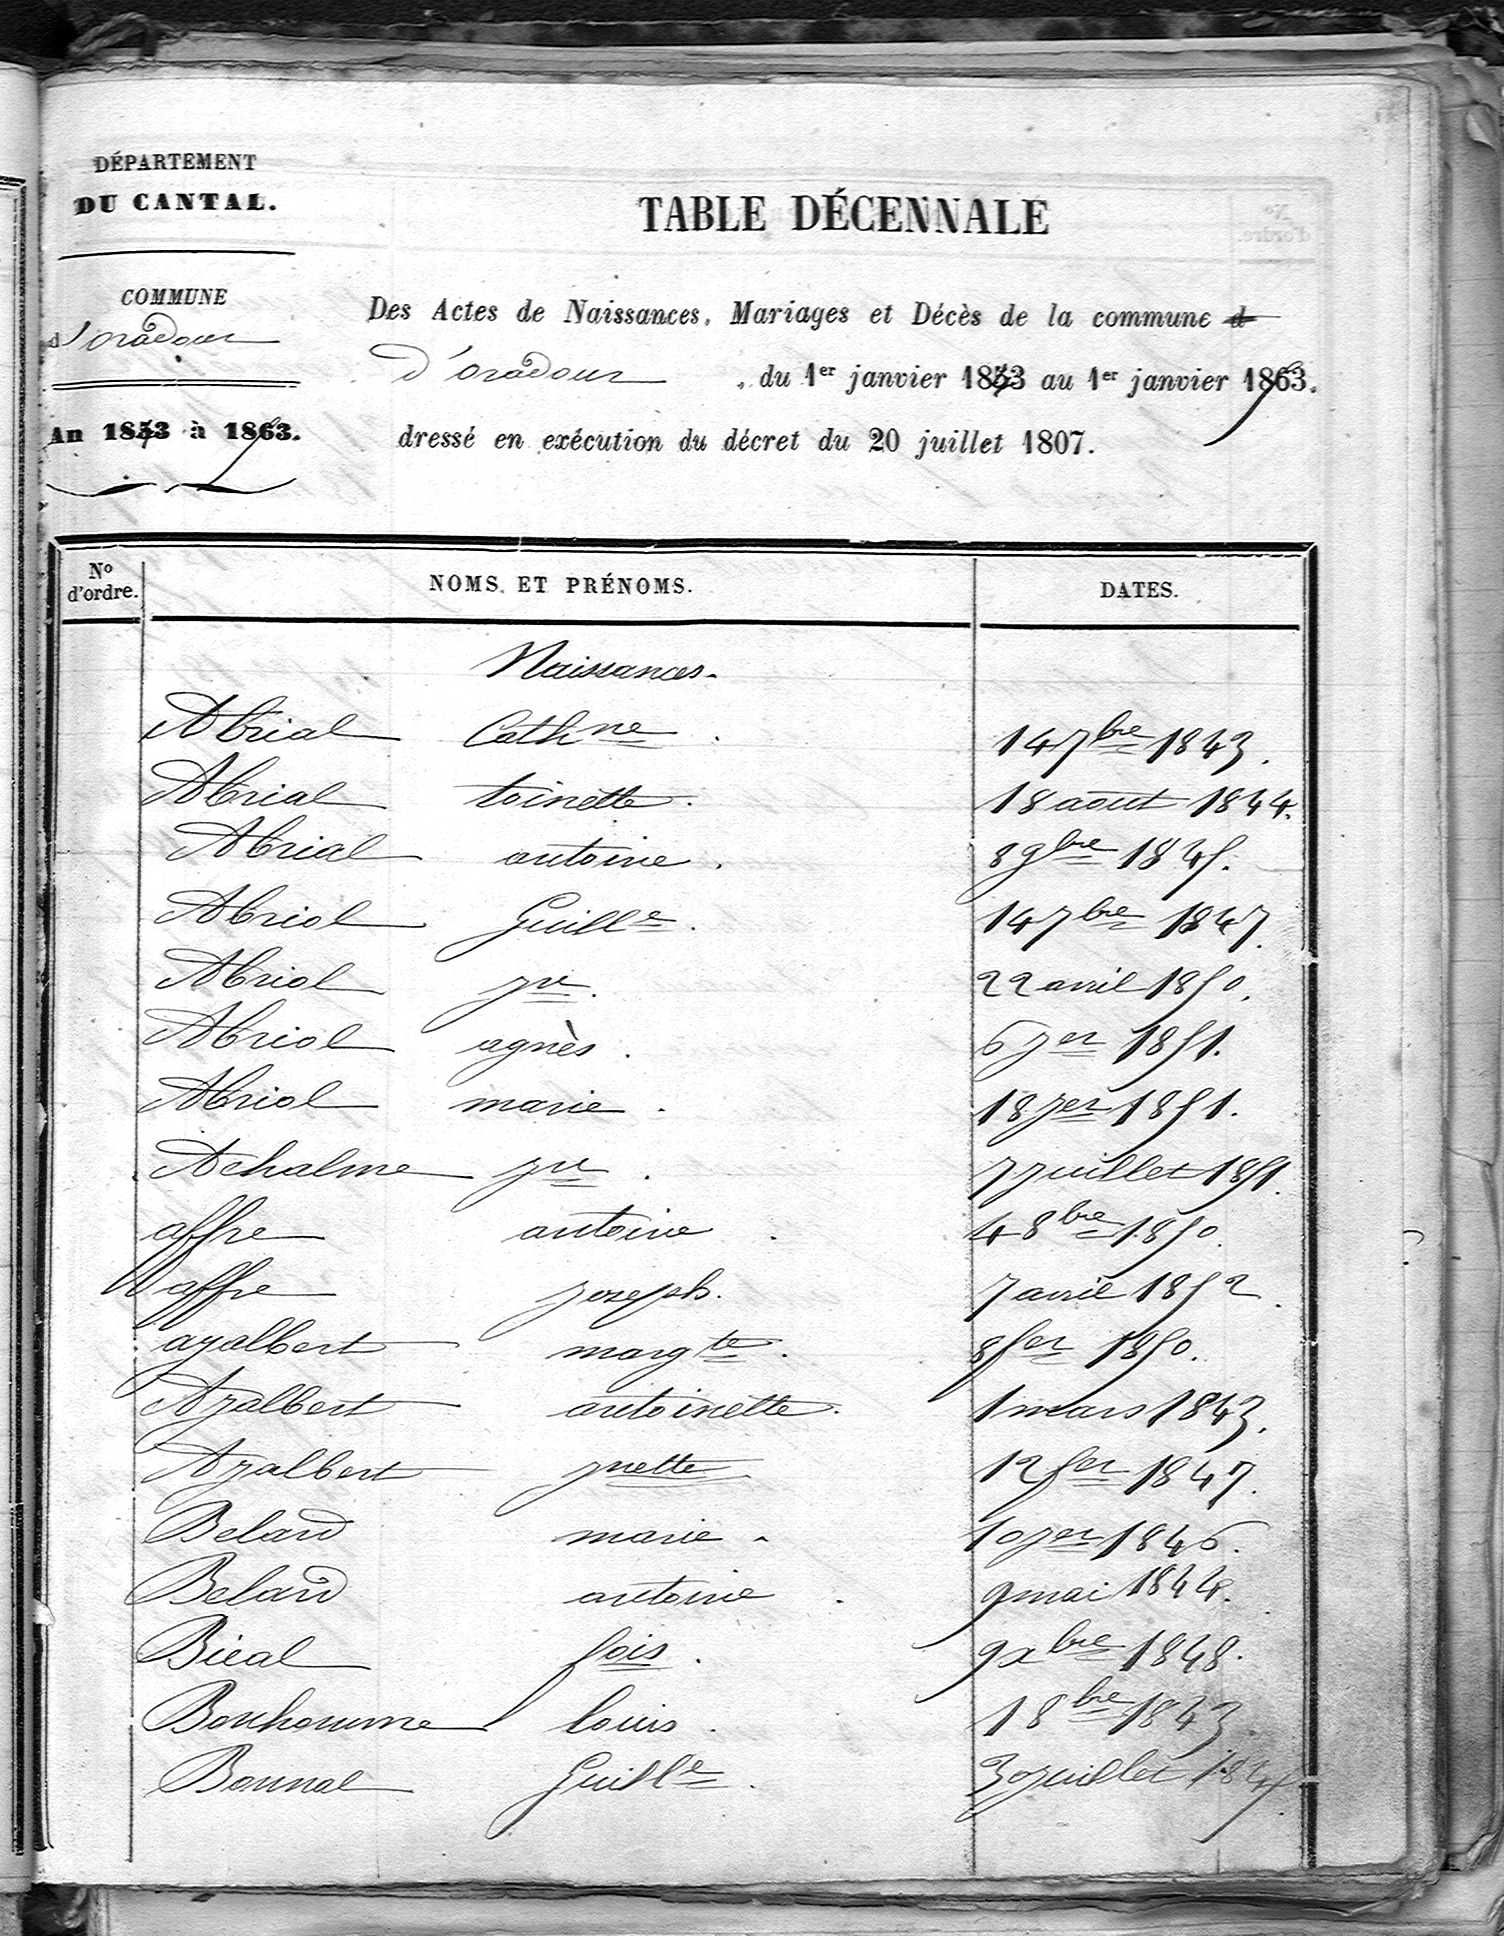 DÉPARTEMENT
DU CANTAL.
COMMUNE
d'oradour
An 1843 à 1853.
TABLE DÉCENNALE
Des Actes de Naissances, Mariages et Décès de la commune d
d'oradour, du 1er janvier 1843 au 1er janvier 1853.
dressé en exécution du décret du 20 juillet 1807.
No d'ordre. NOMS ET PRÉNOMS. DATES.
Naissances.
Abrial Cathne. 14 7bre 1843.
Abrial toinette. 18 aout 1844.
Abrial antoine. 8 9bre 1845.
Abriol Guille. 14 7bre 1847.
Abriol pre. 22 avril 1850.
Abriol agnès. 6 jer 1851.
Abriol marie. 18 jer 1851.
Achalme pre. 7 juillet 1851.
affre antoine. 4 8bre 1850.
affre joseph. 7 avril 1852.
azalbert margte. 8 fer 1850.
Azalbert antoinette. 1 mars 1843.
Azalbert jnette 12 fer 1847.
Belard marie. 10 jer 1846.
Belard antoine. 9 mai 1844.
Biéal fois. 9 xbre 1848.
Bonhoumme louis. 1 8bre 1843.
Bounal Guille. 30 juillet 1845